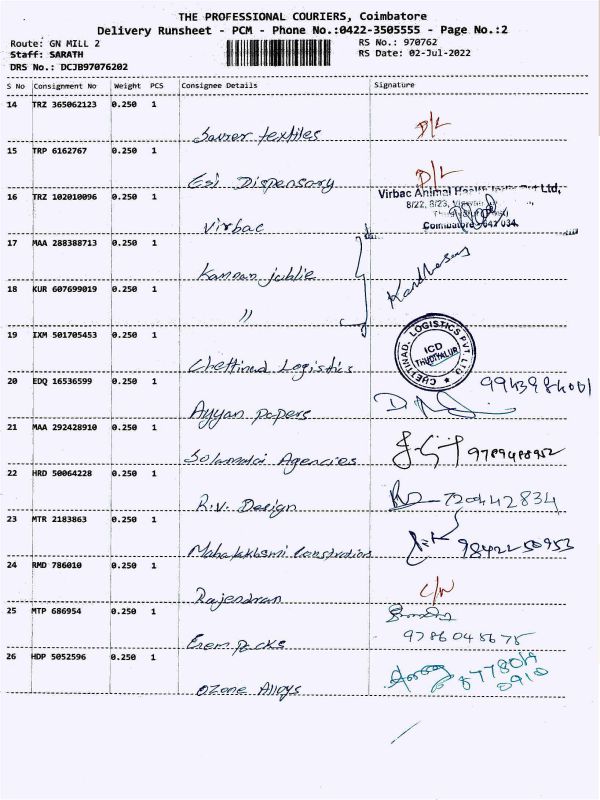 THE PROFESSIONAL COURIERS, Coimbatore
Delivery Runsheet - PCM - Phone No.:0422-3505555 - Page No.:2
Route: GN MILL 2 RS No.: 970762
Staff: SARATH RS Date: 02-Jul-2022
DRS No.: DCJB97076202
S No Consignment No Weight PCS Consignee Details Signature
14 TRZ 365062123 0.250 1
Saurer textiles D/L
15 TRP 6162767 0.250 1
Esi Dispensary D/L
16 TRZ 102010096 0.250 1
Virbac Animal Health
8/22, 8/23,
Coimbatore - 641 034.
Virbac
17 MAA 288388713 0.250 1
Kannan jublie
18 KUR 607699019 0.250 1
"
19 IXM 501705453 0.250 1
CHETTINAD LOGISTICS PVT. LTD
ICD
THUDIYALUR
Chettinad Logistics
20 EDQ 16536599 0.250 1
Ayyan papers
21 MAA 292428910 0.250 1
Solamalai Agencies 9789488952
22 HRD 50064228 0.250 1
R.V. Design 7204442834
23 MTR 2183863 0.250 1
Mahalakshmi Constrations 9842250953
24 RMD 786010 0.250 1
Rajendran C/N
25 MTP 686954 0.250 1
9786048675
packs
26 HDP 5052596 0.250 1
Ozone Alloys